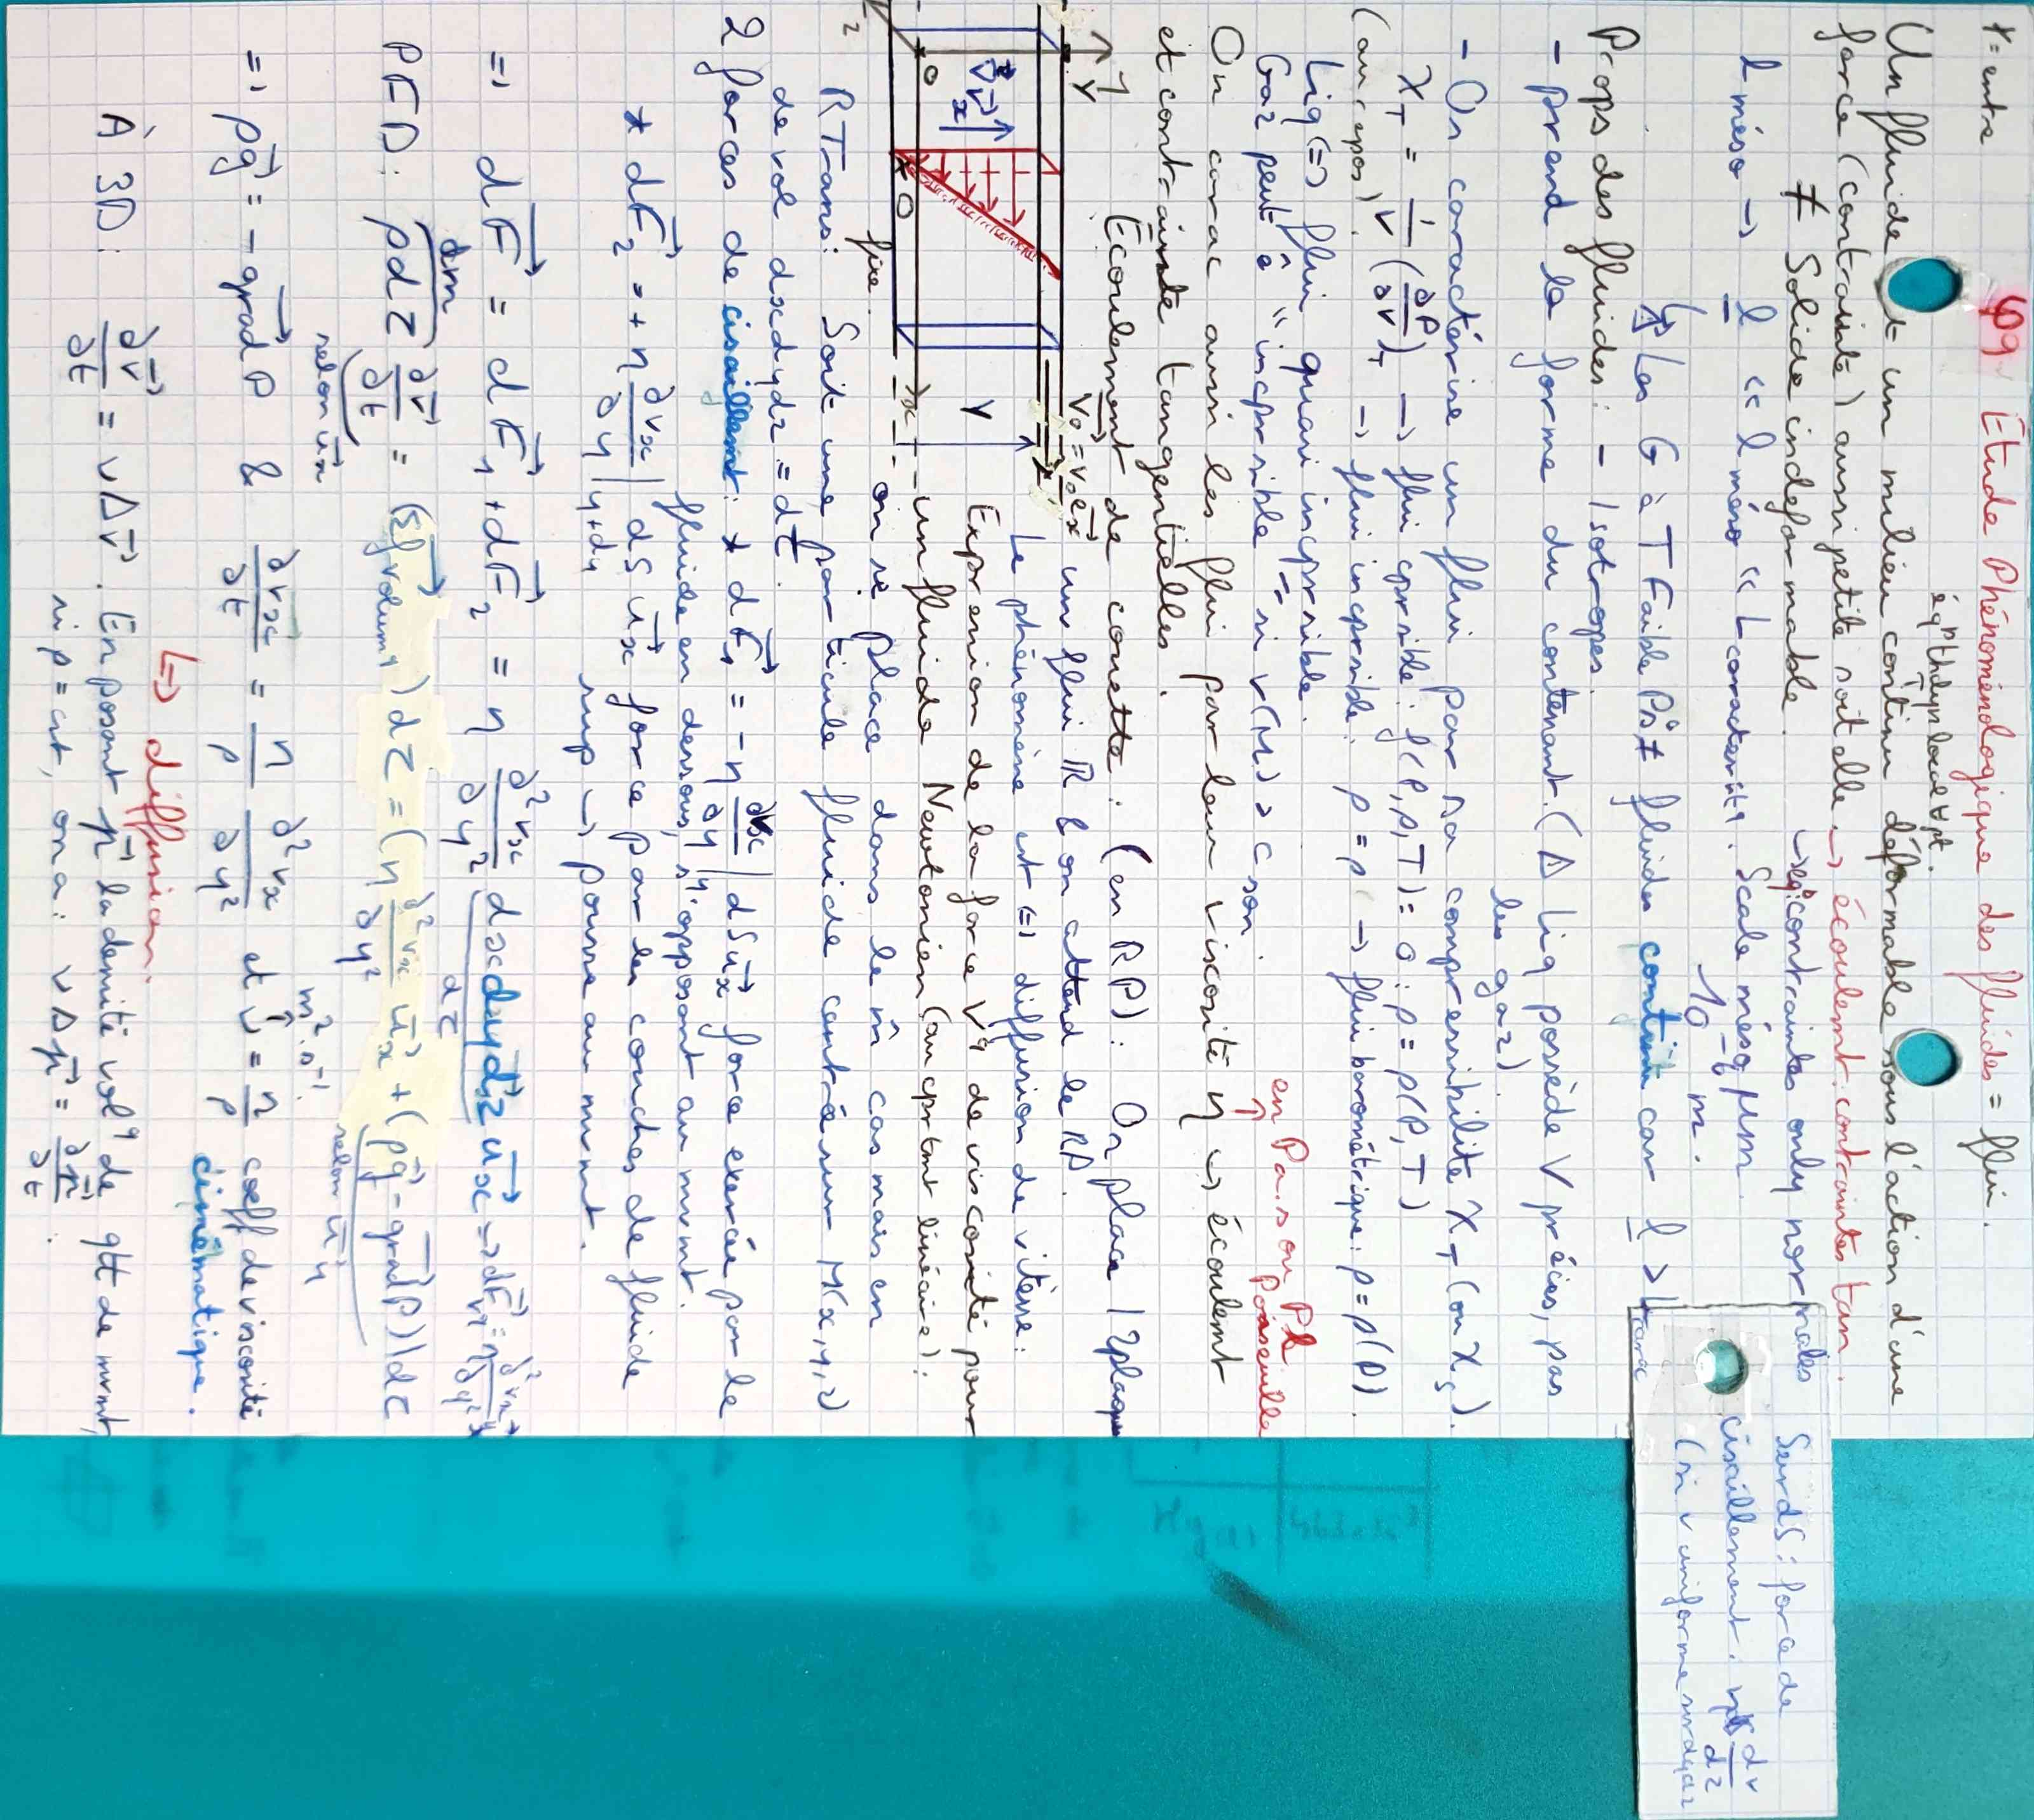 φ9 Étude Phénoménologique des fluides = flui.
Un fluide est un milieu continu déformable sous l'action d'une
éq thdyn locale ∀ pt.
force (contrainte) aussi petite soit elle → écoulemt: contraintes tan.
≠ Solide indéformable. → contraintes only normales
l méso → l << l méso << L caractérist. Scale méso μm
10⁻⁶ m.
Les G à T Faible P ≠ fluides continu car l > L carac
Props des fluides: - Isotropes.
- prend la forme du contenant. (Δ Liq possède V précis, pas
les gaz).
- On caractérise un flui par sa compressibilité χ_T (ou χ_S).
χ_T = 1/V (∂P/∂V)_T → flui cprsible: f(P,ρ,T)=0: ρ=ρ(P,T)
(au repos) → flui incprsible: ρ=ρ → flui barométrique: ρ=ρ(P).
Liq (=) flui quasi incprsible.
Gaz peut ê "incprsible" = si v(M) > c son.
en Pa.s ou Pl
Poiseuille
On carac aussi les flui par leur viscosité η → écoulemt
et contrainte tangentielles.
Écoulement de couette: (en RP): On place 1/2 plaque
un flui R & on attend le RP.
Le phénomène est (=) diffusion de vitesse:
Y
V₀ = v₀ e_x
O
x
O
fixe.
Expression de la force Vq de viscosité pour
un fluide Newtonien (au cprtmt linéaire):
on se place dans le m̂ cas mais en
RTrans: Soit une particule fluide centrée sur M(x,y,z)
de vol dxdydz = dτ.
2 forces de cisaillemt: * dF₁ = -η ∂vx/∂y|y dS u_x force exercée par le
fluide en dessous, s'opposant au mvmt.
* dF₂ = +η ∂vx/∂y|y+dy dS u_x force par les couches de fluide
sup → pousse au mvmt.
=> dF = dF₁ + dF₂ = η ∂²vx/∂y² dxdydz u_x → dF vq = η ∂²vx/∂y² u_x
dτ
PFD: ρdτ ∂v/∂t = (Σ f volumq) dτ = (η ∂²vx/∂y² u_x + (ρg - grad P)) dτ
dm
selon u_x
selon u_y
=> ρg = -grad P & ∂vx/∂t = η/ρ ∂²vx/∂y² et ν = η/ρ coeff de viscosité
m².s⁻¹
cinématique.
↳ diffusion.
À 3D: ∂v/∂t = νΔv. En posant p la densité volq de qt de mvmt,
si ρ=cst, on a: νΔp = ∂p/∂t.
Sur dS: force de
cisaillement: dv/dz
(si v uniforme sur dydz